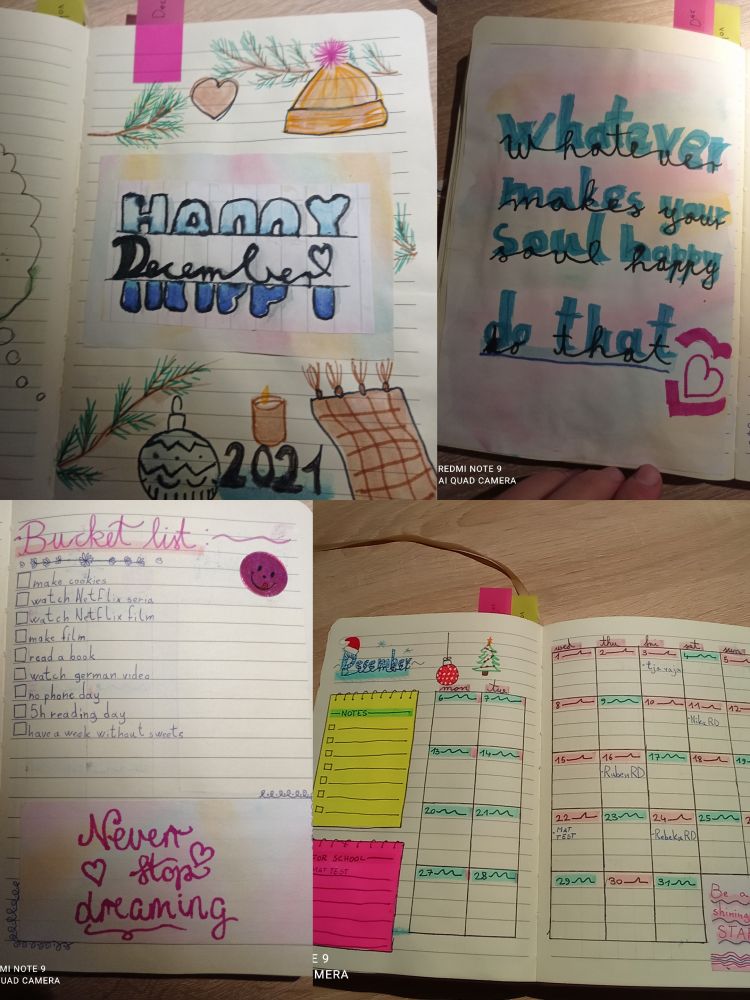 Dec
HAPPY
December
2021
Dec
Whatever
whatever
makes your
makes your
soul happy
soul happy
do that
do that
REDMI NOTE 9
AI QUAD CAMERA
Bucket list:
make cookies
watch NetFlix seria
watch NetFlix film
make film
read a book
watch german video
no phone day
5h reading day
have a week without sweets
Never
stop
dreaming
MI NOTE 9
UAD CAMERA
December
mon tue wed thu fri sat sun
NOTES
1 2 3 4 5
6 7 8 9 10 11 12
-Nika RD
13 14 15 16 17 18 19
-Ruben RD
20 21 22 23 24 25
MAT
TEST
-Rebeka RD
27 28 29 30 31
FOR SCHOOL
MAT TEST
Be a
shining
STA
E 9
MERA